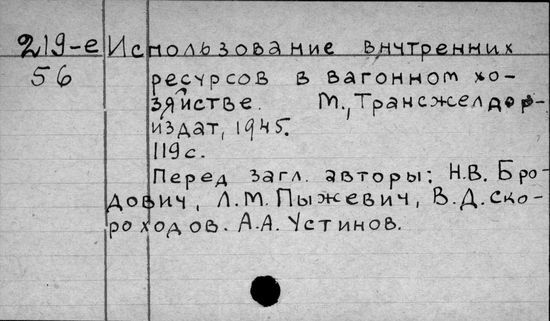 219-е Использование внутренних
56 ресурсов в вагонном хо-
зяйстве. М., Трансжелдор-
издат, 1945.
119с.
Перед загл. авторы: Н.В. Бро-
дович, Л.М. Пыжевич, В.Д. Ско-
роходов. А.А. Устинов.